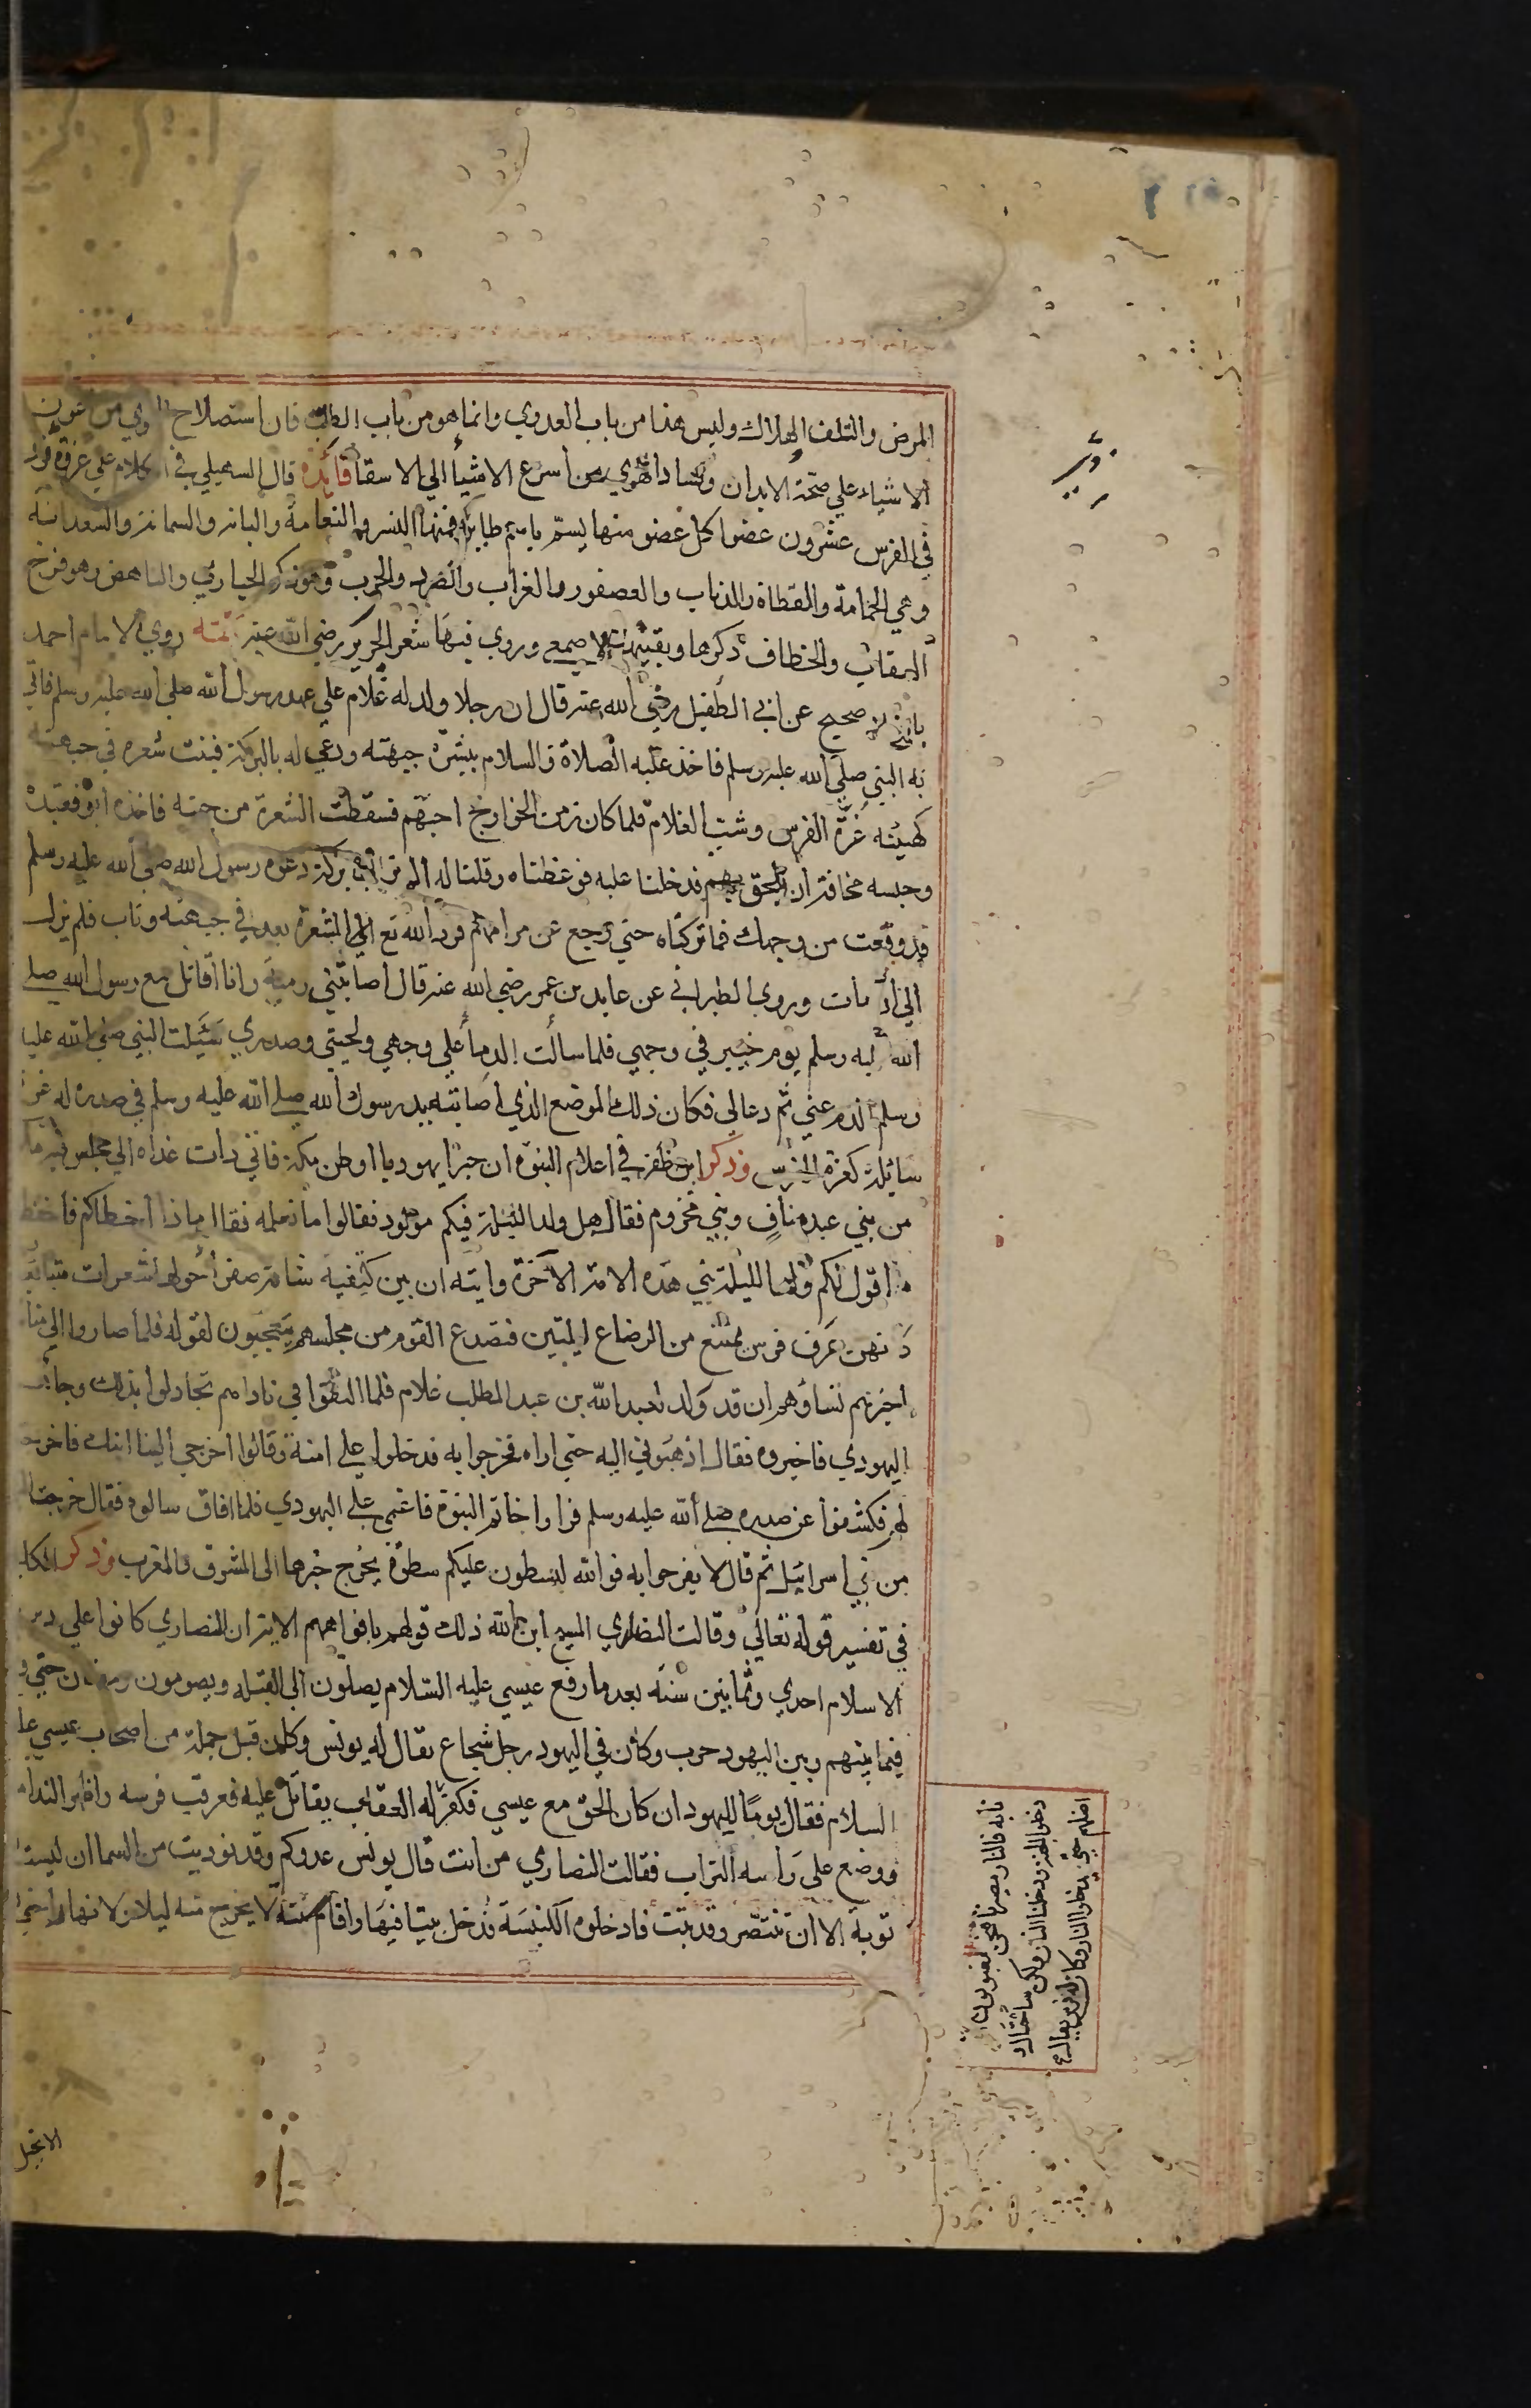 المرض والتلف الهلاك وليس هذا من باب العدوي وانما هو من باب الطب فان استصلاح من عون
الاشياء علي صحة الابدان وفساد الهوي من أسرع الاشيأ الي الاسقا فائده قال السهيلي في الكلام علي غزوة
في الفرس عشرون عضوا كل عضو منها يسمّ باسم طاير فمنها النسر والنعامة والباز والسمانة والسعدانية
وهي الحمامة والقطاة والذباب والعصفور والغراب والصرد والخرب وهو ذكر الحباري والناهض وهو فرخ
العقاب والخطاف ذكرها وبقيتها الاصمعي وروي فيها شعر الجرير رضي الله عنه تتمة روي الامام احمد
صحيح عن ابي الطفيل رضي الله عنه قال ان رجلا ولد له غلام علي عهد رسول الله صلي الله عليه وسلم فاتي
به النبي صلي الله عليه وسلم فاخذ عليه الصلاة والسلام ببشرة جبهته ودعي له بالبركة فنبت شعره في جبهته
كهيئه غرّة الفرس وشب الغلام فلما كان زمن الخوارج احبهم فسقطت الشعرة من جبهته فاخذه ابوه فقيده
وحبسه مخافة ان يلحق بهم فدخلنا عليه فوعظناه وقلنا له الم تر الي بركة دعوة رسول الله صلي الله عليه وسلم
قد وقعت من وجهك فما تركناه حتي رجع عن مرامهم فرد الله تع الي الشعرة بعد في جبهته وتاب فلم يزل
الي اذ مات وروي الطبراني عن عايد بن عمر رضي الله عنه قال اصابتني رمية وانا اقاتل مع رسول الله صلي
الله عليه وسلم يوم خيبر في وجهي فلما سالت الدما علي وجهي ولحيتي وصدري النبي صلي الله عليه
وسلم الدم عني ثم دعا لي فكان ذلك الموضع الذي اصابته يد رسول الله صلي الله عليه وسلم في صدره له غرة
سائلة كغرة الفرس وذكر ابن ظفر في اعلام النبوه ان حبرا يهوديا اوطن مكة فاتي ذات غداه الي مجلس فيه
من بني عبد مناف وبني مخزوم فقال هل ولد الليلة فيكم مولود فقالوا ما نعلمه فقال اما ذا اخطاكم فاحفظ
ما اقول لكم ولد الليلة نبي هذه الامة الآخرة وايته ان بين كتفيه شامة صفر أحولها شعرات متتابعة
كانهن عرف فرس يمتنع من الرضاع ليلتين فتصدع القوم من مجلسهم يتعجبون لقوله فلما صاروا الي منا
اخبرتهم نساؤهم ان قد ولد لعبد الله بن عبد المطلب غلام فلما التقوا في ناداهم تجادلوا بذلك وجأ
اليهودي فاخبروه فقال اذهبوني اليه حتي اراه فخرجوا به فدخلوا علي امنة وقالوا اخرجي الينا ابنك فاخرجته
لهم فكشفوا عن صدره صلي الله عليه وسلم فراوا خاتم النبوة فاغمي علي اليهودي فلما افاق سالوه فقال خرجت
من بني اسرائيل ثم قال لا يفرحوا به فوالله ليسطون عليكم سطوة يخرج خبرها الي المشرق والمغرب وذكر
في تفسير قوله تعالي وقالت النصاري المسيح ابن الله ذلك قولهم بافواههم الاية ان النصاري كانوا علي دين
الاسلام احدي وثمانين سنة بعد ما رفع عيسي عليه السلام يصلون الي القبله ويصومون رمضان حتي
فيما بينهم وبين اليهود حرب وكان في اليهود رجل شجاع يقال له بونس وكان قبل جملة من اصحاب عيسي عليه
السلام فقال يوما لليهود ان كان الحق مع عيسي
نابه فالنار مصيرنا فنحن مغبونون ان
دخلوا الجنة ودخلنا النار ولكن ساحتال و
اضلهم حتي يدخلوا النار وكان له فرس يقال
فكفر له العقاب يقاتل عليه فعرقب فرسه واظهر الندامه
ووضع علي رأسه التراب فقالت النصاري من انت قال بونس عدوكم وقد نوديت من السما ان ليست
توبة الا ان تتنصر وقد تبت فادخلوه الكنيسة فدخل بيتا فيها واقام سنة لا يخرج منه ليلا ولا نهارا
الانجيل